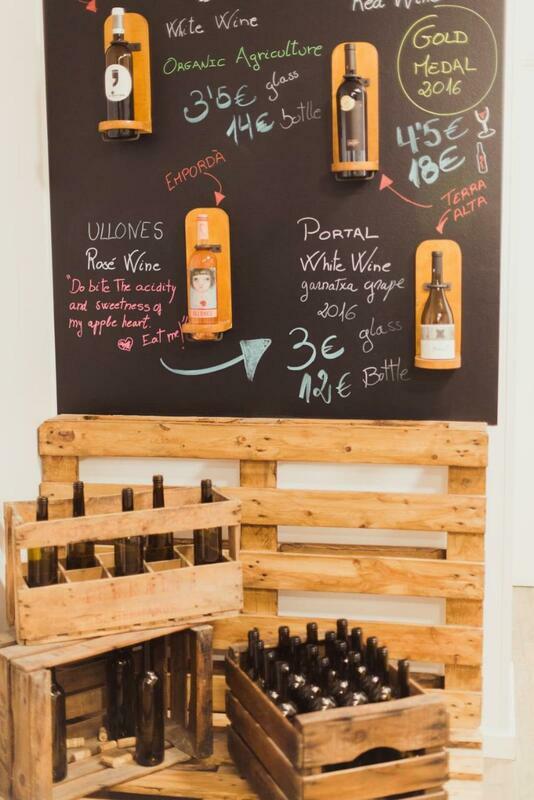 White Wine
Organic Agriculture
3'5€ glass
14€ bottle
Red Wine
GOLD
MEDAL
2016
4'5€
18€
TERRA
ALTA
EMPORDÀ
ULLONES
Rosé Wine
"Do bite the acidity
and sweetness of
my apple heart.
Eat me!"
ULLONES
PORTAL
White Wine
garnatxa grape
2016
3€ glass
12€ Bottle